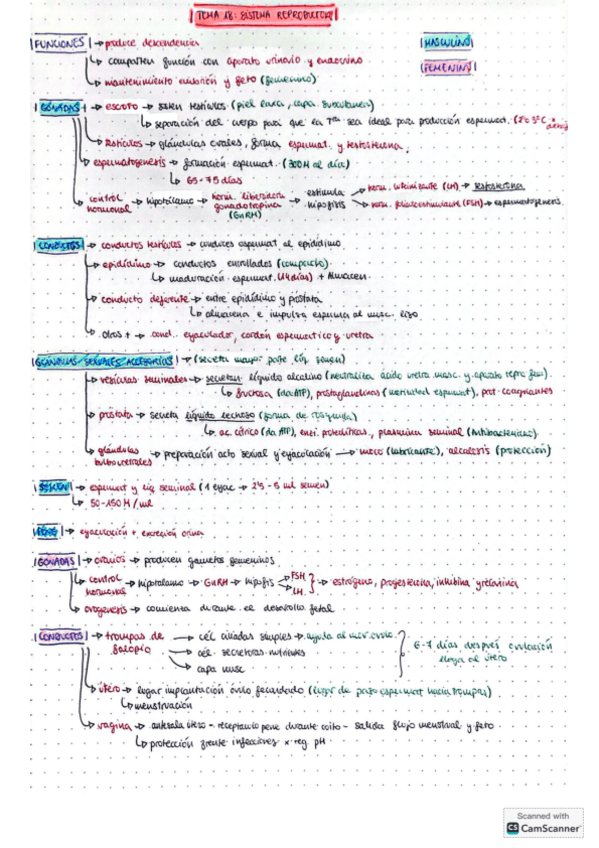 TEMA 18: SISTEMA REPRODUCTOR
FUNCIONES → produce descendencia
MASCULINO
↳ comparten función con aparato urinario y endocrino
FEMENINO
↳ mantenimiento embrión y feto (femenino)
GÓNADAS → escroto → sosten testículos (piel laxa, capa subcutanea)
↳ separación del cuerpo para que la Tra sea ideal para producción espermat. (2º 3ºC
↳ testículos → glándulas ovales, forma espermat. y testosterona.
↳ espermatogenesis → formación espermat. (300M al día)
↳ 65-75 días
↳ control hormonal → hipotálamo → horm. liberadora gonadotropina (GnRH) → estimula hipofisis
→ horm. luteinizante (LH) → testosterona
→ horm. foliculoestimulante (FSH) → espermatogenesis.
CONDUCTOS → conductos testículos → conduces espermat al epidídimo
↳ epidídimo → conductos enrollados (compacto)
↳ maduración espermat. (14 días) + Almacen.
↳ conducto deferente → entre epidídimo y próstata
↳ almacena e impulsa esperma al musc. liso
↳ otros → cond. eyaculador, cordón espermatico y uretra
GLÁNDULAS SEXUALES ACCESORIAS → (secreta mayor parte líq. semen)
↳ vesículas seminales → secretan líquido alcalino (neutraliza ácido uretra masc. y aparato repro fem)
↳ fructosa (da ATP), prostaglandinas (motilidad espermat), prot. coagulantes
↳ próstata → secreta líquido lechoso
↳ ac. cítrico (da ATP), enzi. proteolíticas., plasmina seminal (Antibacteriano)
↳ glándulas bulbouretrales → preparación acto sexual y eyaculación → moco (lubricante), alcalosis (protección)
SEMEN → espermat y líq seminal (1 eyac → 2'5 - 5 ml semen)
↳ 50-150M / ml
PENE → eyaculación + excreción orina
GÓNADAS → ovarios → producen gametos femeninos
↳ control hormonas → hipotalamo → GnRH → hipofis → FSH LH } → estrógeno, progesterona, inhibina y relaxina
↳ ovogenesis → comienza durante el desarrollo fetal
CONDUCTOS → trompas de falopio → cél ciliadas simples → ayuda al mov ovulo.
→ cél. secretoras nutrientes
→ capa musc
6-7 días después ovulación llega al útero
↳ útero → lugar implantación óvulo fecundado (lugar de paso espermat hacia trompas)
↳ menstruación
↳ vagina → antesala útero - receptáculo pene durante coito - salida flujo menstrual y feto.
↳ protección frente infecciones x reg. pH.
Scanned with
CS CamScanner